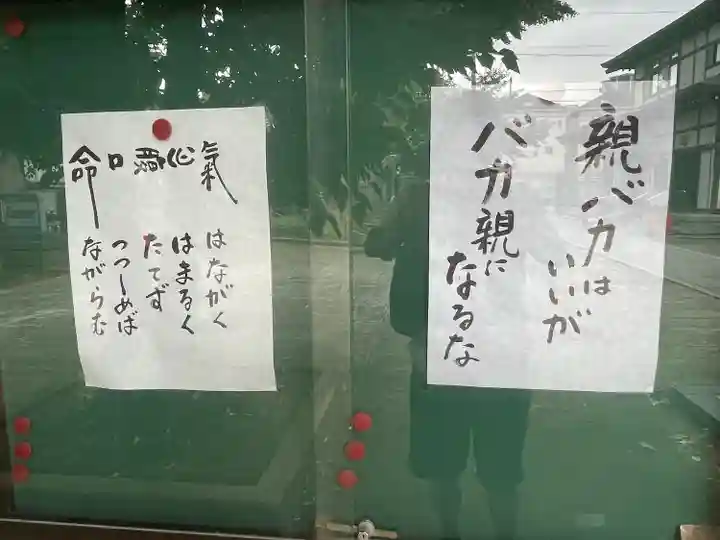 親バカは
いいが
バカ親に
なるな
氣はながく
心はまるく
腹たてず
口つつしめば
命ながらむ